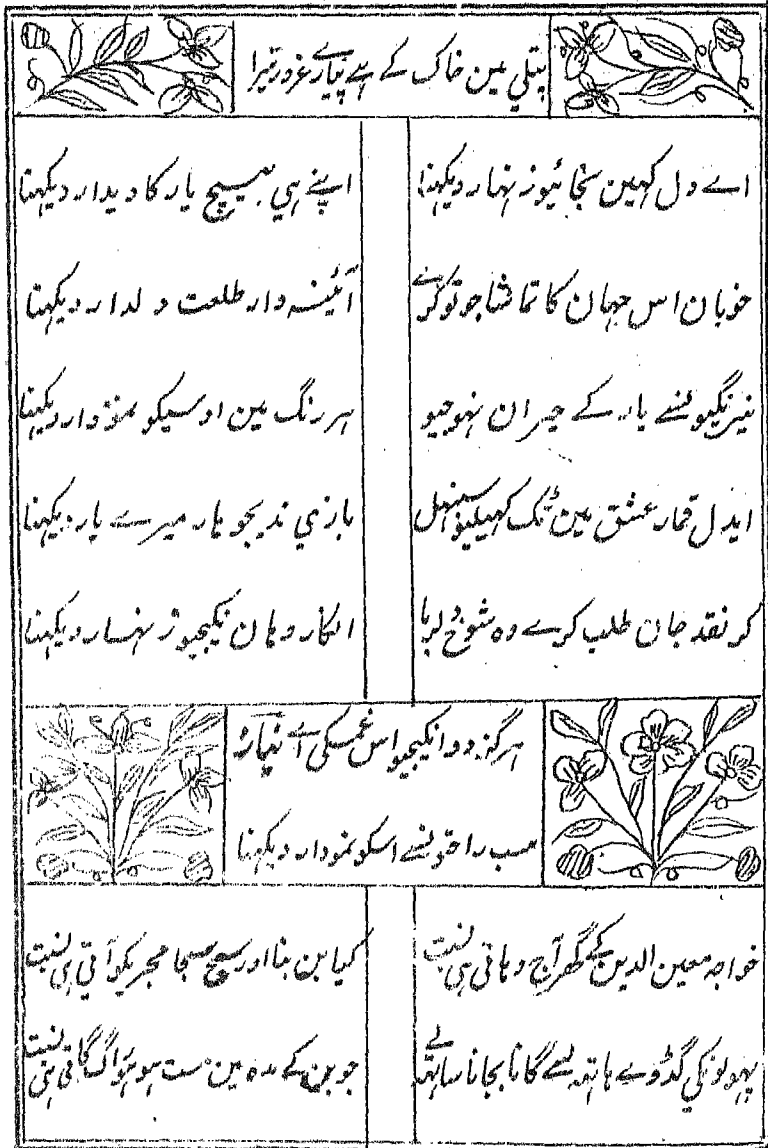 پتلي مین خاک کے ہے نیارے غرور تیرا
اے دل کہین نجائیو زنہار دیکہنا اپنے ہي بیچ یار کا دیدار دیکہنا
خوبان اس جہان کا تماشا جو تو کرے آئینہ دار طلعت دلدار دیکہنا
نیرنگیونسے یار کے حیران نہوجیو ہر رنگ مین اوسیکو نمودار دیکہنا
ایدل قمار عشق مین ٹک کہیلیو سنبہل بازي ندیجو ہار میرے یار دیکہنا
گر نقد جان طلب کرے وہ شوخ دلربا انکار وہان نکیجیو زنہار دیکہنا
ہرگز دوا نکیجیو اس غمکي اے نیاز
سب راحتونسے اسکو نمودار دیکہنا
خواجہ معین الدین کے گھر آج دہاتی ہی بسنت کیا بن بنا اور سج سجا مجریکو آتی ہی بسنت
پہولونکی گڈوے ہاتہہ لے گانا بجانا ساتہہ لے جوبن کے مدہ مین مست ہو ہو راگ گاتی ہی بسنت